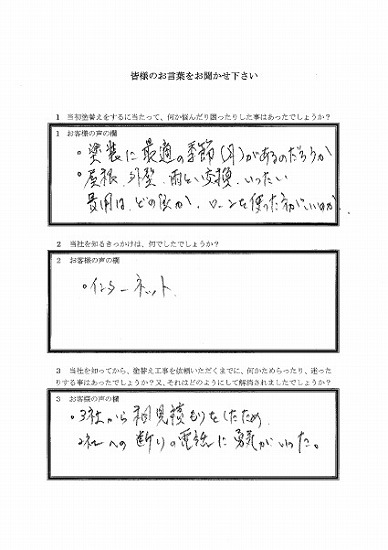 皆様のお言葉をお聞かせ下さい
1 当初塗替えをするに当たって、何か悩んだり困ったりした事はあったでしょうか？
1 お客様の声の欄
・塗装に最適の季節(月)があるのだろうか
・屋根、外壁、雨とい交換、いったい
費用は、どの位か、ローンを使った方がいいのか、
2 当社を知るきっかけは、何でしたでしょうか？
2 お客様の声の欄
・インターネット
3 当社を知ってから、塗替え工事を依頼いただくまでに、何かためらったり、迷った
りする事はあったでしょうか？又、それはどのようにして解消されましたでしょうか？
3 お客様の声の欄
・3社から相見積もりをしたため、
2社への断りの電話に勇気がいった。